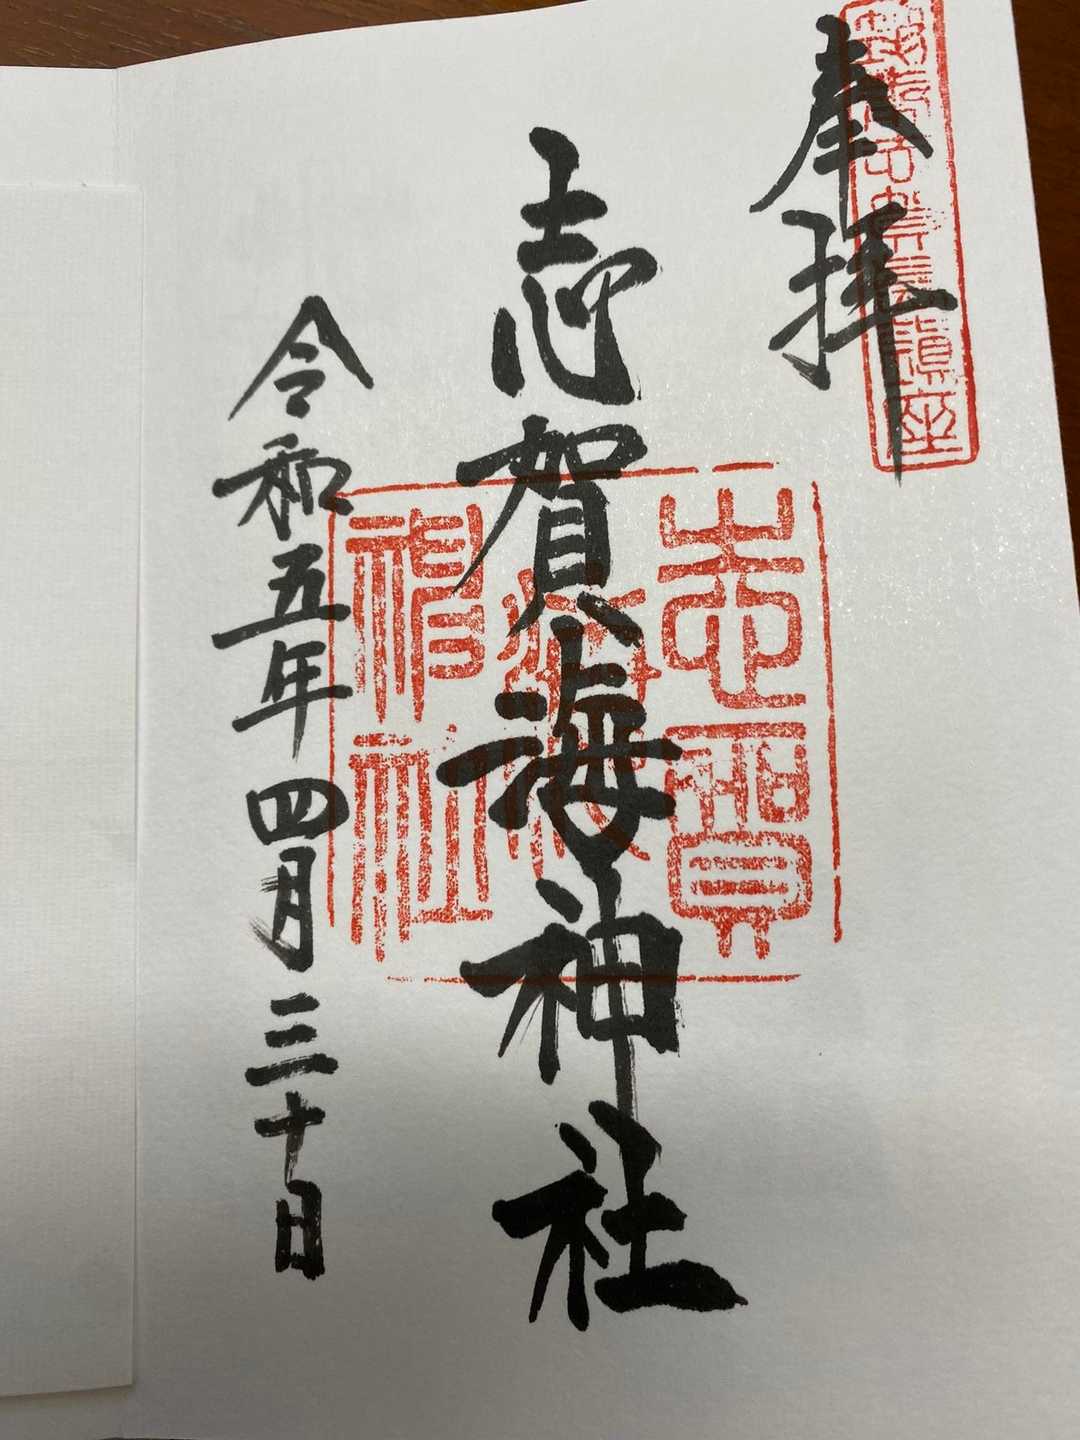 奉拝
志賀海神社
志賀
海神社
令和五年四月三十日